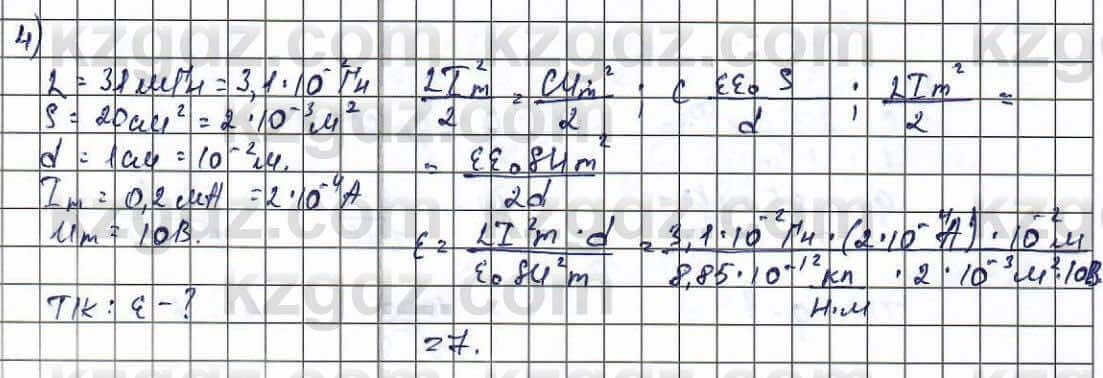 4)
L = 31 мГн = 3,1·10⁻²Гн
S = 20см² = 2·10⁻³м²
d = 1см = 10⁻²м.
Im = 0,2 мА = 2·10⁻⁴А
Um = 10В.
Т/к: ε - ?
LIm²/2 = CUm²/2 ; C εε₀S/d ; LIm²/2 =
= εε₀SUm²/2d
ε = LI²m·d/ε₀SU²m = 3,1·10⁻²Гн·(2·10⁻⁴А)·10⁻²м/8,85·10⁻¹² кл/Н·м ·2·10⁻³м²·10В
=7.
kzgdz.com kzgdz.com kzgdz.com
kzgdz.com kzgdz.com
kzgdz.com kzgdz.com kzgdz.com
kzgdz.com kzgdz.com